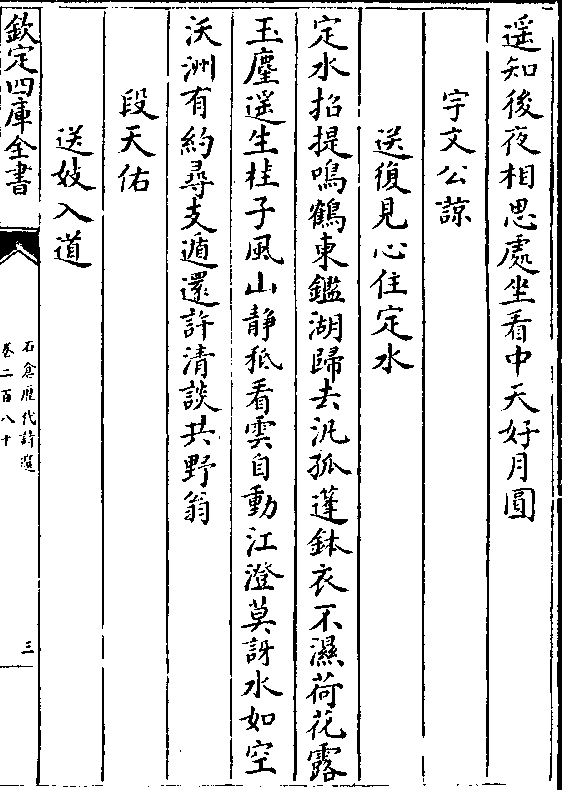 遥知後夜相思處坐看中天好月圓
宇文公諒
送復見心住定水
定水招提鳴鶴東鑑湖歸去汎孤蓬鉢衣不濕荷花露
玉麈遥生桂子風山静秖看雲自動江澄莫訝水如空
沃洲有約尋支遁還許清談共野翁
段天佑
送妓入道
欽定四庫全書
石倉歴代詩選
卷二百八十
三